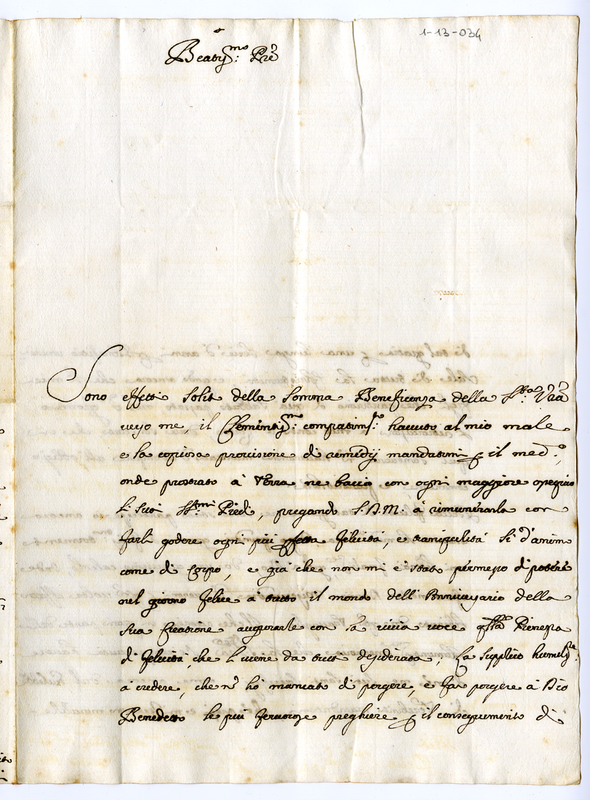 1-13-034
Beatiss:mo Prē
Sono effetti soliti della somma Beneficenza della S:tà Vrā
verso me, il Clementiss:mo compatim:to havuto al mio male
e la copiosa provisione di remedij mandatimi il med:o,
onde prostrato à terra ne baccio con ogni maggiore ossequio
li suoi SS:mi Piedi, pregando S.D.M. à rimunerarla con
farli godere ogni più felicità, e tranquilità sì d'animo
come di Corpo, e già che non mi è stato permesso di poterli
nel giorno felice à tutto il mondo dell'Anniversario della
sua Creatione augurarle con la viva voce Pienezza
di felicità che li viene da tutti desiderata; La supplico humilm:te
à credere, che nō ho mancato di porgere, e far porgere à Dio
Benedetto le più fervorose preghiere il conseguimento di